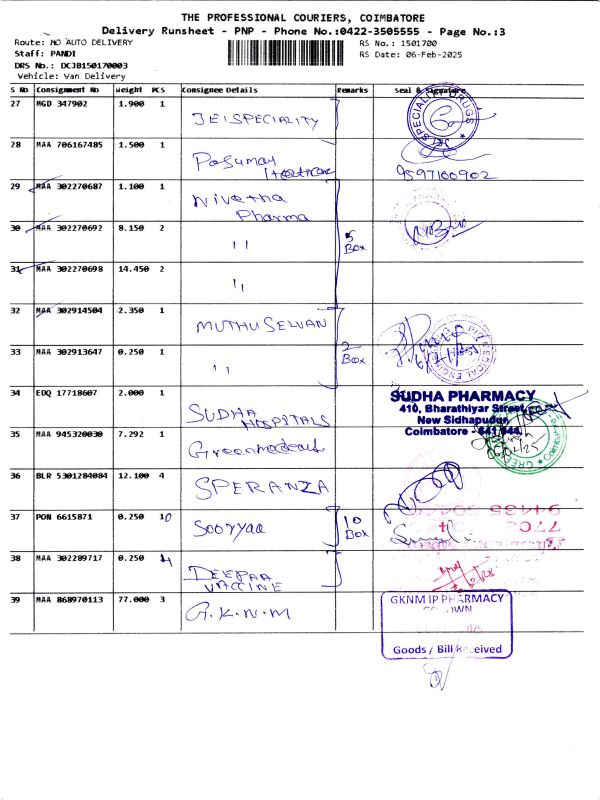 THE PROFESSIONAL COURIERS, COIMBATORE
Delivery Runsheet - PNP - Phone No.:0422-3505555 - Page No.:3
Route: MO AUTO DELIVERY
RS No.: 1501700
Staff: PANDI
RS Date: 06-Feb-2025
DRS No.: DCJB150170003
Vehicle: Van Delivery
S No Consignment No Weight PCS Consignee Details Remarks Seal & Signature
27 MGD 347902 1.900 1 JEISPECIALITY
JEI SPECIALITY DRUGS
28 MAA 706167485 1.500 1 Pasumai
Healthcare 9597100902
29 MAA 302270687 1.100 1 Nivetha
Pharma
30 MAA 302270692 8.150 2 " 5
Box
31 MAA 302270698 14.450 2 "
32 MAA 302914504 2.350 1 MUTHU SELVAN
33 MAA 302913647 0.250 1 " 2
Box
34 EDQ 17718607 2.000 1 SUDHA
HOSPITALS
SUDHA PHARMACY
410, Bharathiyar Street,
New Sidhapudur,
Coimbatore - 641 044.
35 MAA 945320030 7.292 1
36 BLR 5301284084 12.100 4 SPERANZA
37 PON 6615871 0.250 10 Sooryaa 10
Box
38 MAA 302289717 0.250 4 DEEPAA
VACCINE
39 MAA 868970113 77.000 3 G.K.N.M
GKNM IP PHARMACY
Goods / Bill Received